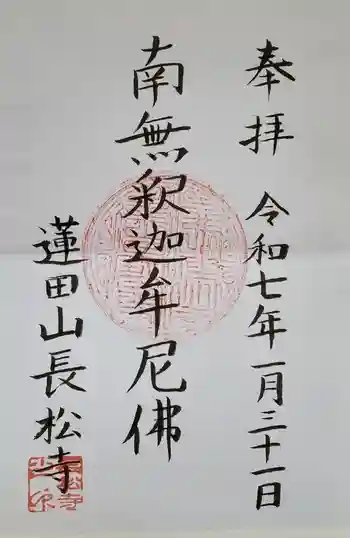 奉拝 令和七年一月三十一日
南無釈迦牟尼佛
蓮田山長松寺